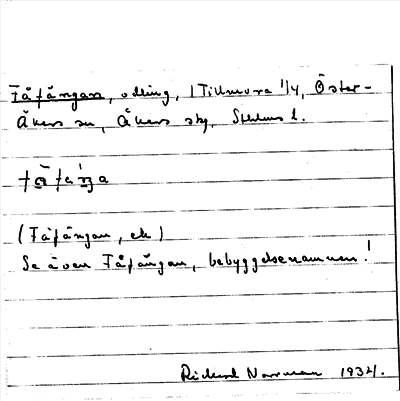 Fåfängan, odling, 1 Tillmora 1/4, Öster-
Åkers sn, Åkers skg, Sthlms l.
(Fåfängan, ek)
Se även Fåfängan, bebyggelsenamnen!
Rickard Norrman 1934.